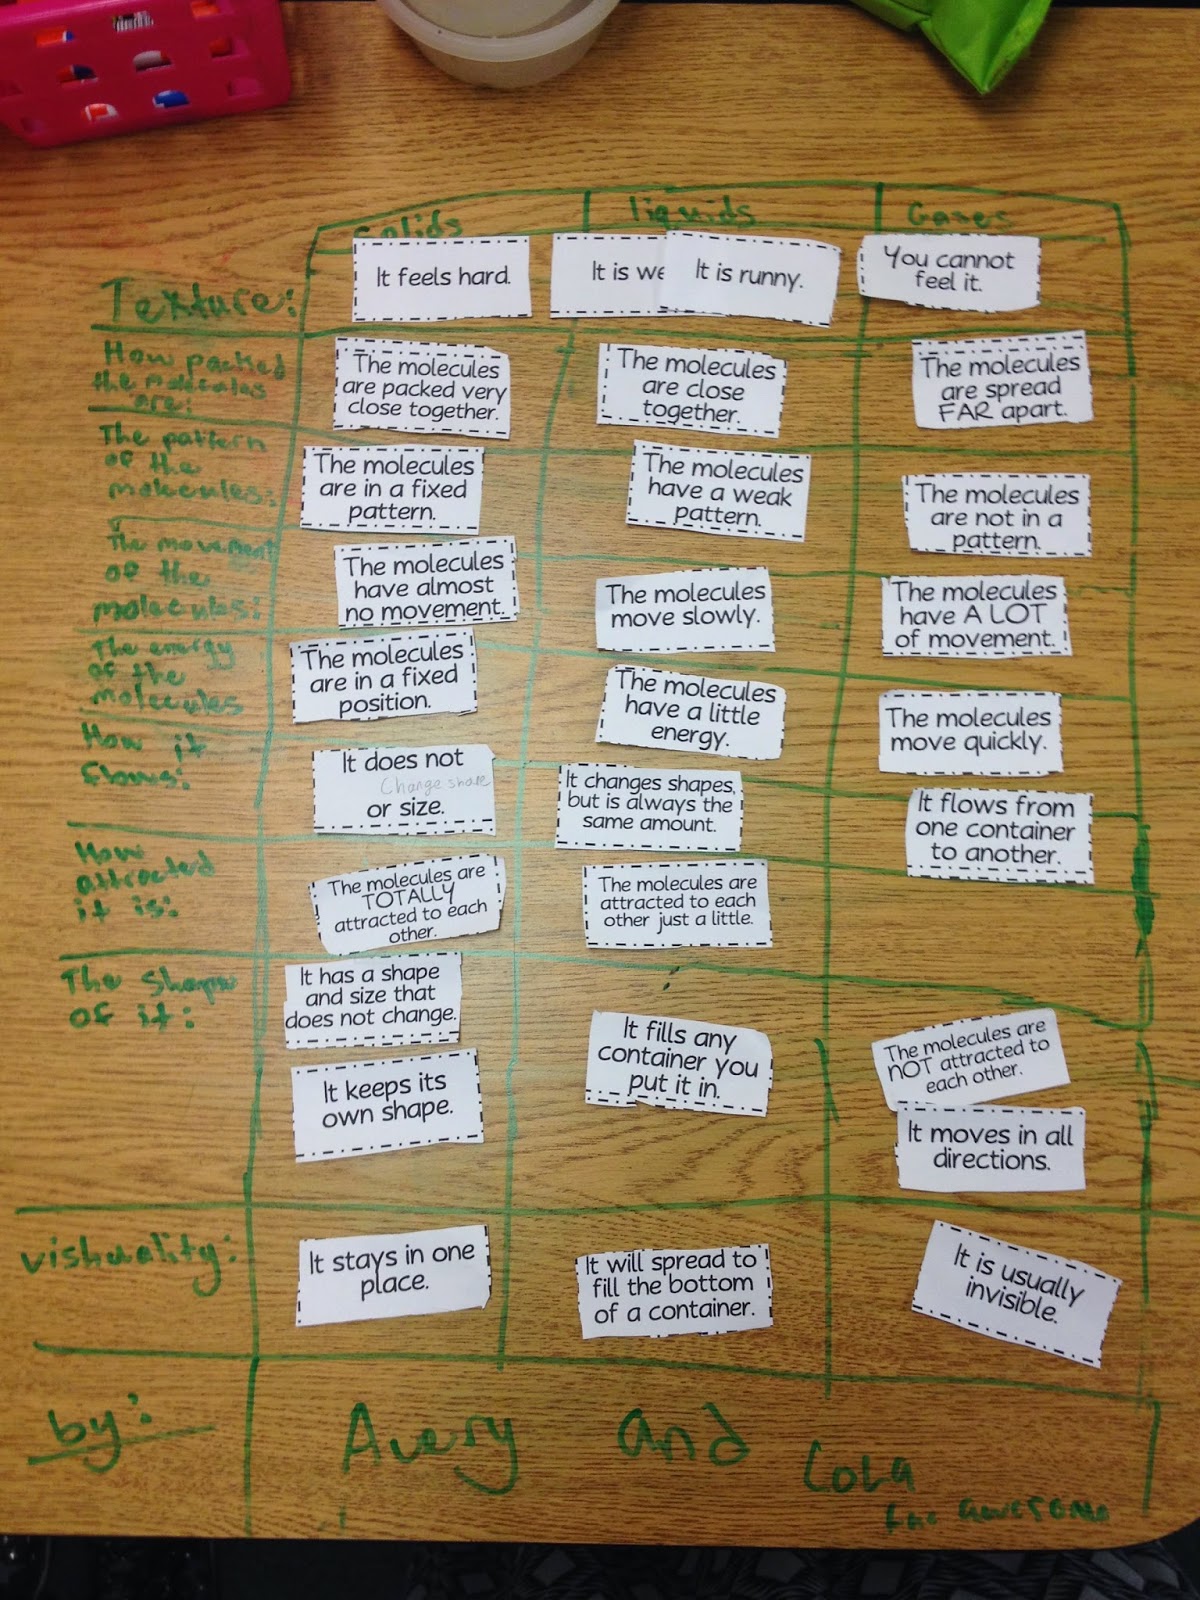 Solids
liquids
Gases
Texture:
It feels hard.
It is we
It is runny.
You cannot
feel it.
How packed
the molecules
are:
The molecules
are packed very
close together.
The molecules
are close
together.
The molecules
are spread
FAR apart.
The pattern
of the
molecules:
The molecules
are in a fixed
pattern.
The molecules
have a weak
pattern.
The molecules
are not in a
pattern.
The movement
of the
molecules:
The molecules
have almost
no movement.
The molecules
move slowly.
The molecules
have A LOT
of movement.
The energy
of the
molecules
The molecules
are in a fixed
position.
The molecules
have a little
energy.
The molecules
move quickly.
How it
flows:
It does not
Change shape
or size.
It changes shapes,
but is always the
same amount.
It flows from
one container
to another.
How
attracted
it is:
The molecules are
TOTALLY
attracted to each
other.
The molecules are
attracted to each
other just a little.
The shape
of it:
It has a shape
and size that
does not change.
It keeps its
own shape.
It fills any
container you
put it in.
The molecules are
NOT attracted to
each other.
It moves in all
directions.
vishuality:
It stays in one
place.
It will spread to
fill the bottom
of a container.
It is usually
invisible.
by:
Avery and Lola